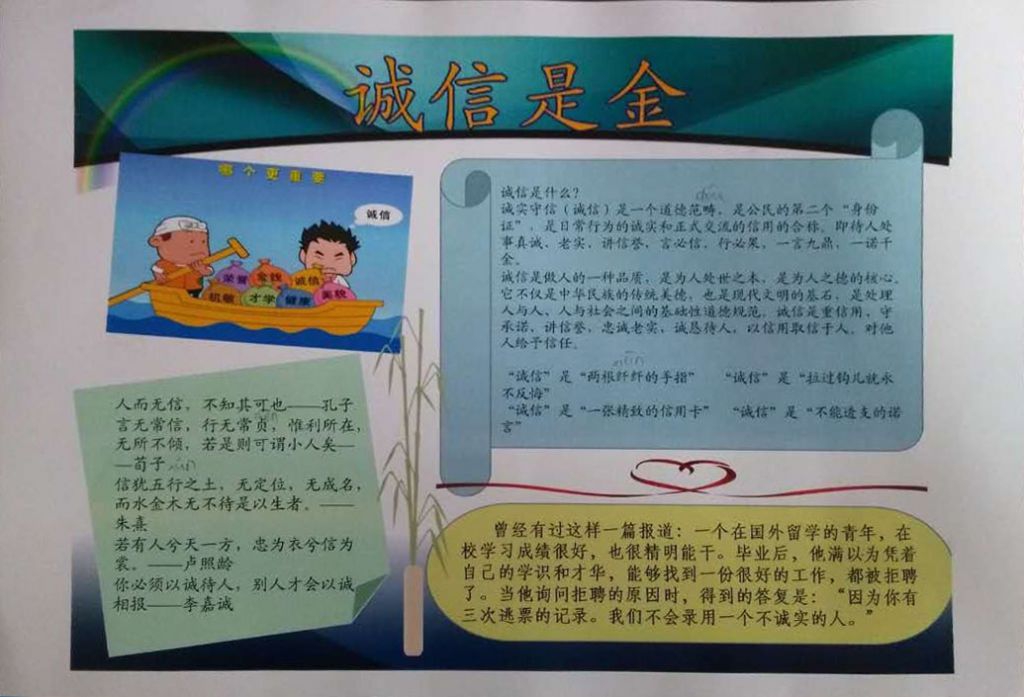 诚信是金
哪个更重要
诚信
荣誉 金钱 诚信
机敏 才学 健康 美貌
诚信是什么？
诚实守信（诚信）是一个道德范畴，是公民的第二个“身份
证”，是日常行为的诚实和正式交流的信用的合称。即待人处
事真诚、老实、讲信誉，言必信，行必果，一言九鼎，一诺千
金。
诚信是做人的一种品质，是为人处世之本，是为人之德的核心。
它不仅是中华民族的传统美德，也是现代文明的基石，是处理
人与人、人与社会之间的基础性道德规范。诚信是重信用、守
承诺、讲信誉，忠诚老实，诚恳待人，以信用取信于人，对他
人给予信任。
“诚信”是“两根纤纤的手指” “诚信”是“拉过钩儿就永
不反悔”
“诚信”是“一张精致的信用卡” “诚信”是“不能透支的诺
言”
人而无信，不知其可也——孔子
言无常信，行无常贞，惟利所在，
无所不倾，若是则可谓小人矣—
—荀子
信犹五行之土，无定位，无成名，
而水金木无不待是以生者。——
朱熹
若有人兮天一方，忠为衣兮信为
裳。——卢照龄
你必须以诚待人，别人才会以诚
相报——李嘉诚
曾经有过这样一篇报道：一个在国外留学的青年，在
校学习成绩很好，也很精明能干。毕业后，他满以为凭着
自己的学识和才华，能够找到一份很好的工作，都被拒聘
了。当他询问拒聘的原因时，得到的答复是：“因为你有
三次逃票的记录。我们不会录用一个不诚实的人。”